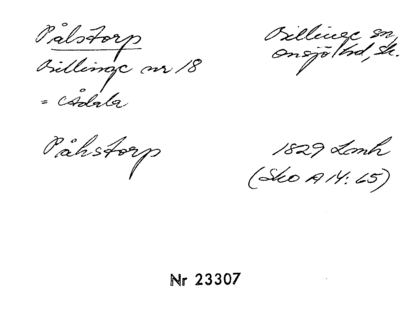 Pålstorp
Billinge sn,
Onsjö hd, Sk.
Billinge nr 18
= Ådala
Påhstorp
1829 Lmh
(Sko A 14:65)
Nr 23307